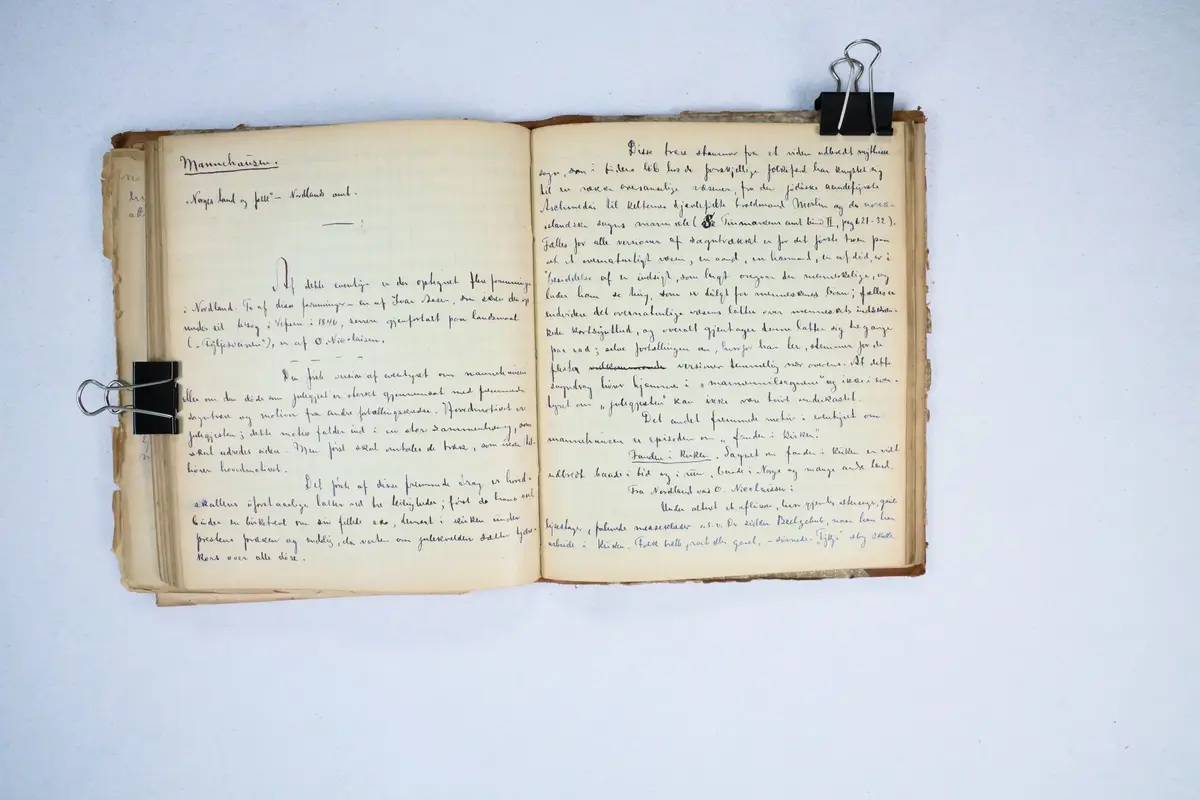 Mannehausen.
„Norges land og folk" – Nordlands amt.
Af dette eventyr er der optegnet flere formninger
i Nordland. To af disse formninger – en af Ivar Aasen, som skrev den op
under sit besøg i Vefsen i 1846, senere gjenfortalt paa landsmaal
(„ "), er af O. Nicolaissen.
Den version af eventyret om mannehausen
eller om den døde som julegjest er sterkt gjennemsat med fremmede
sagntræk og motiver fra andre fortællingskredse. Hovedmotivet er
julegjesten; dette motiv falder ind i en stor sammenhæng, som
skal udredes siden. Men først skal omtales de træk, som ikke til-
hører hovedmotivet.
Det første af disse fremmede drag er hoved-
skallens uforstaaelige latter ved tre leiligheder; først da
over en som sin , dernæst i kirken under
prestens præken og endelig, da verten om julekvelden sætter tjære-
kors over alle døre.
Disse træk stammer fra et viden udbredt mythisk
sagn, som i tidens løb hos de forskjellige folkefærd har knyttet sig
til en række oversanselige væsener, fra den jødiske aandefyrste
Aschmedai til kelternes hjertefødte troldmand Merlin og de norsk-
islandske sagns marmæle (Se Finmarkens amt bind II, pag 621-32).
Fælles for alle versioner af sagntrækket er for det første troen paa
at et overnaturligt væsen, en aand, en havmand, en afdød, er i
besiddelse af en indsigt, som langt overgaar den menneskelige, og
lader ham se ting, som er dulgt for menneskenes børn; fælles er
endvidere det overnaturlige væsens latter over menneskets indskræn-
kede kortsynthed, og overalt gjentager denne latter sig tre gange
paa rad; selve fortællingen om, hvorfor han ler, stemmer for de
fleste versioner temmelig nær overens. At dette
sagndrag hører hjemme i „marmennilsagnene" og ikke i even-
tyret om „julegjesten" kan ikke være tvivl underkastet.
Det andet fremmede motiv i eventyret om
mannehausen er episoden om „fanden i kirken".
Fanden i kirken. Sagnet om fanden i kirken er vidt
udbredt baade i tid og i rum, baade i Norge og mange andre land.
Fra Nordland ved O. Nicolaissen:
Under alteret et aflukke, hvor gjemtes gamle
lysestager, messeklæder o.s.v. Der sidder Beelzebub, naar han har
arbeide i kirken. Folk